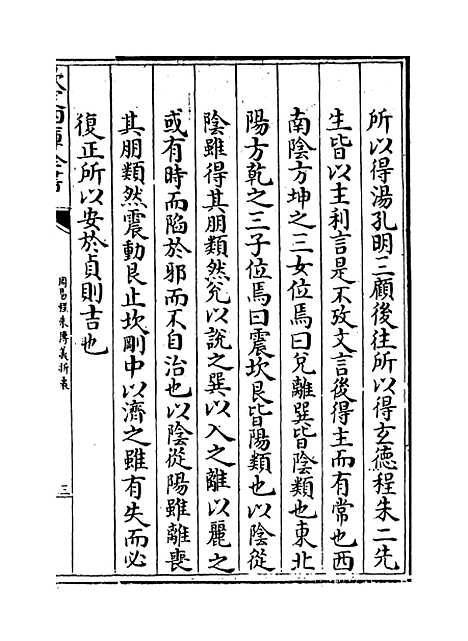 所以得湯孔明三顧後往所以得玄德程朱二先
生皆以主利言是不攷文言後得主而有常也西
南陰方坤之三女位焉曰兌離巽皆陰類也東北
陽方乾之三子位焉曰震坎艮皆陽類也以陰從
陰雖得其朋類然兌以說之巽以入之離以麗之
或有時而陷於邪而不自治也以陰從陽雖離喪
其朋類然震動艮止坎剛中以濟之雖有失而必
復正所以安於貞則吉也
欽定四庫全書
周易程朱傳義折衷
三